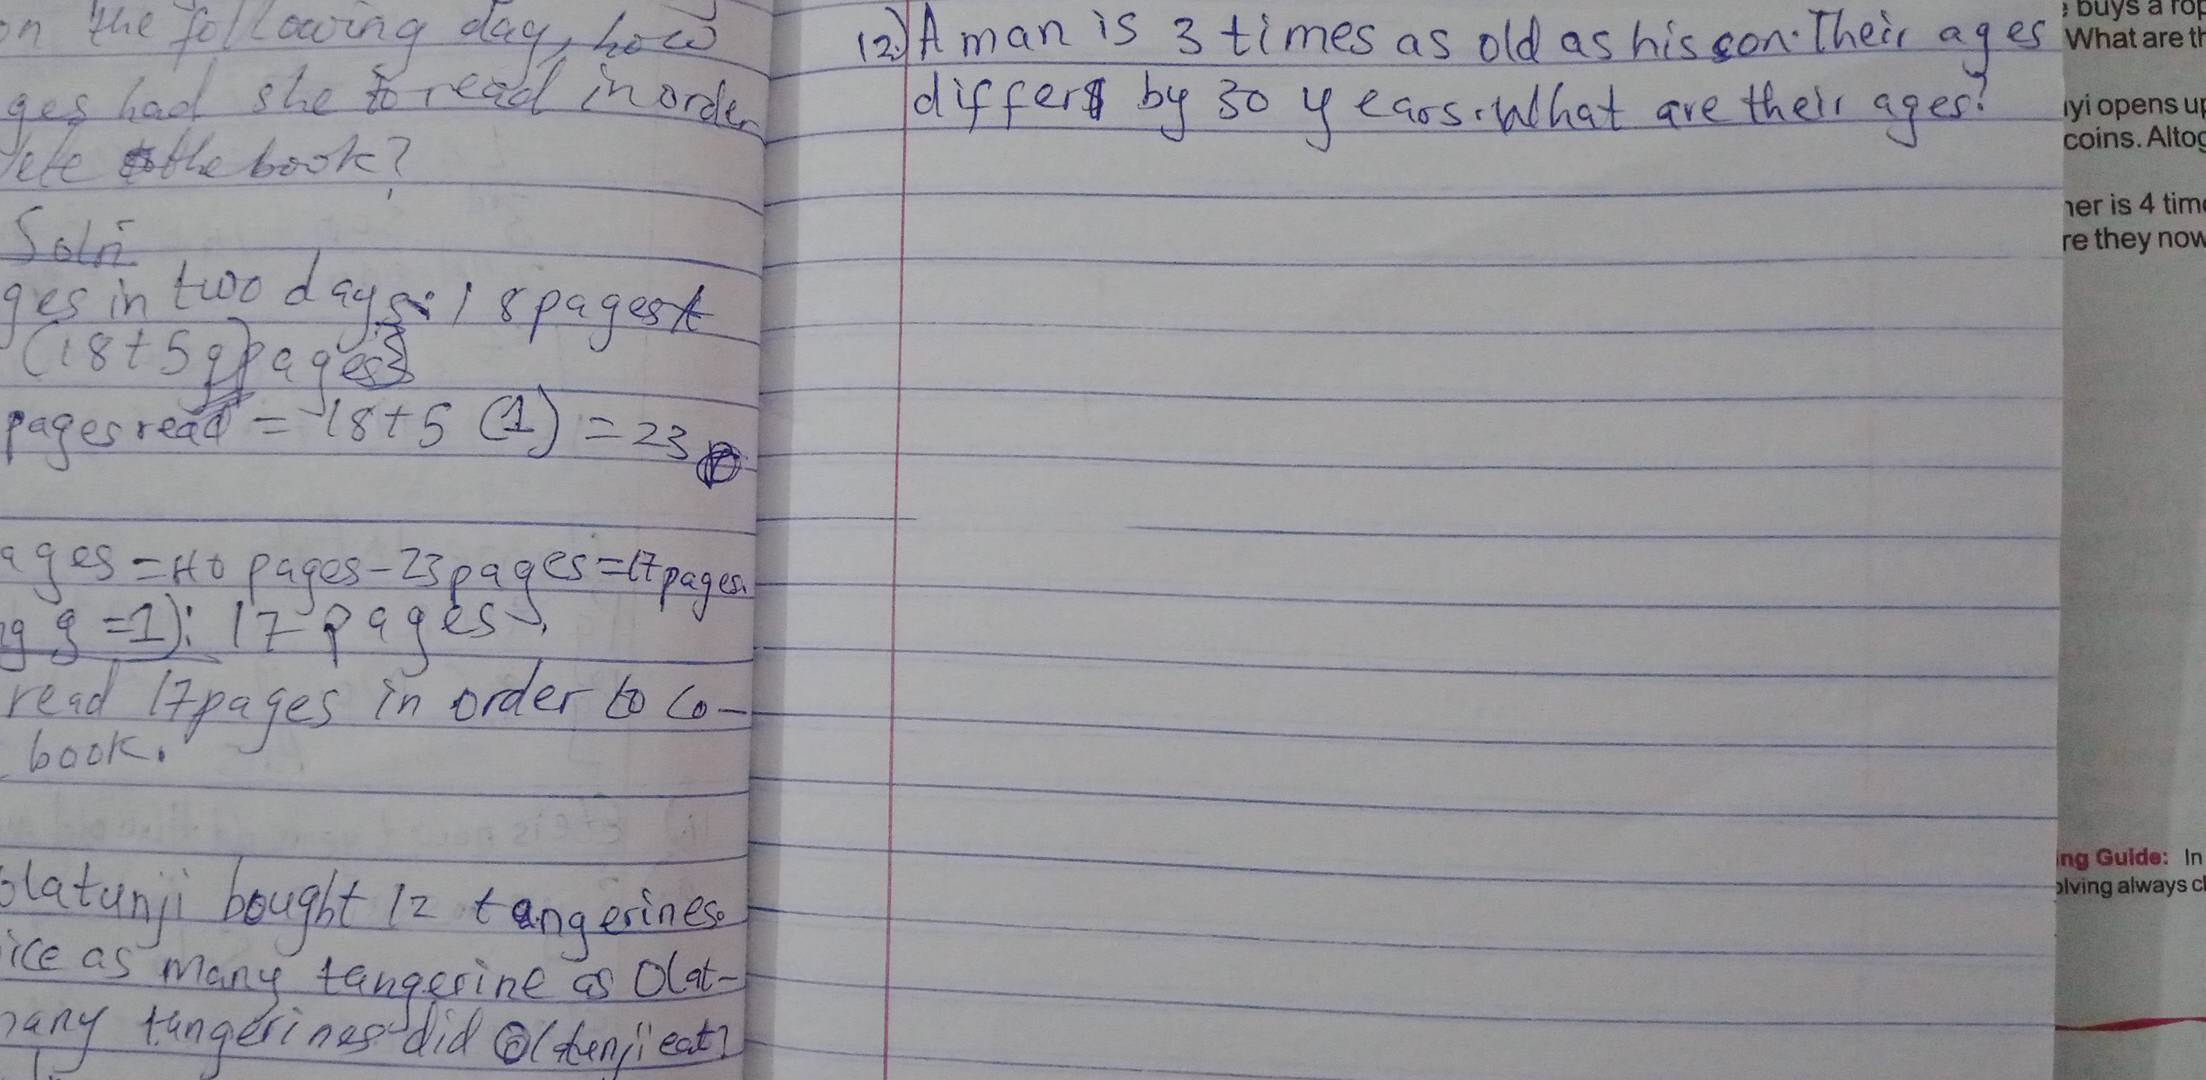 on the following day, how
ges had she to read in order
lete the book?
Soln
ges in two days: 18 pages +
(18+5g) pages
pages read = 18+5 (1) = 23
ages = 40 pages - 23 pages = 17 pages.
g g = 1): 17 pages.
read 17 pages in order to co-
book.
olatunji bought 12 tangerines.
ice as many tangerine as Olat-
many tangerines did eat?
12.) A man is 3 times as old as his son. Their ages
differ by 30 years. What are their ages?
buys a rop
What are th
yi opens up
coins. Altog
her is 4 time
re they now
ng Guide: In
olving always ch